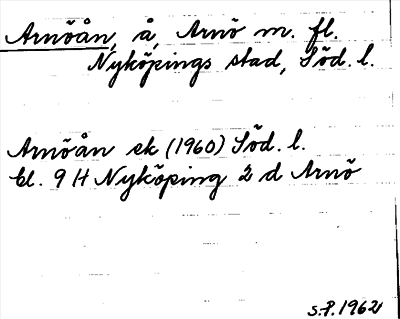 Arnöån, å, Arnö m. fl.
Nyköpings stad, Söd. l.
Arnöån ek (1960) Söd. l.
bl. 9 H Nyköping 2 d Arnö
S.P. 1962